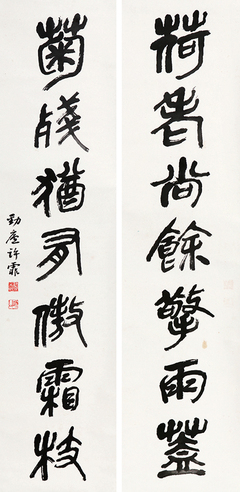 荷老尚餘擎雨蓋
菊殘猶有傲霜枝
勁庵許霏